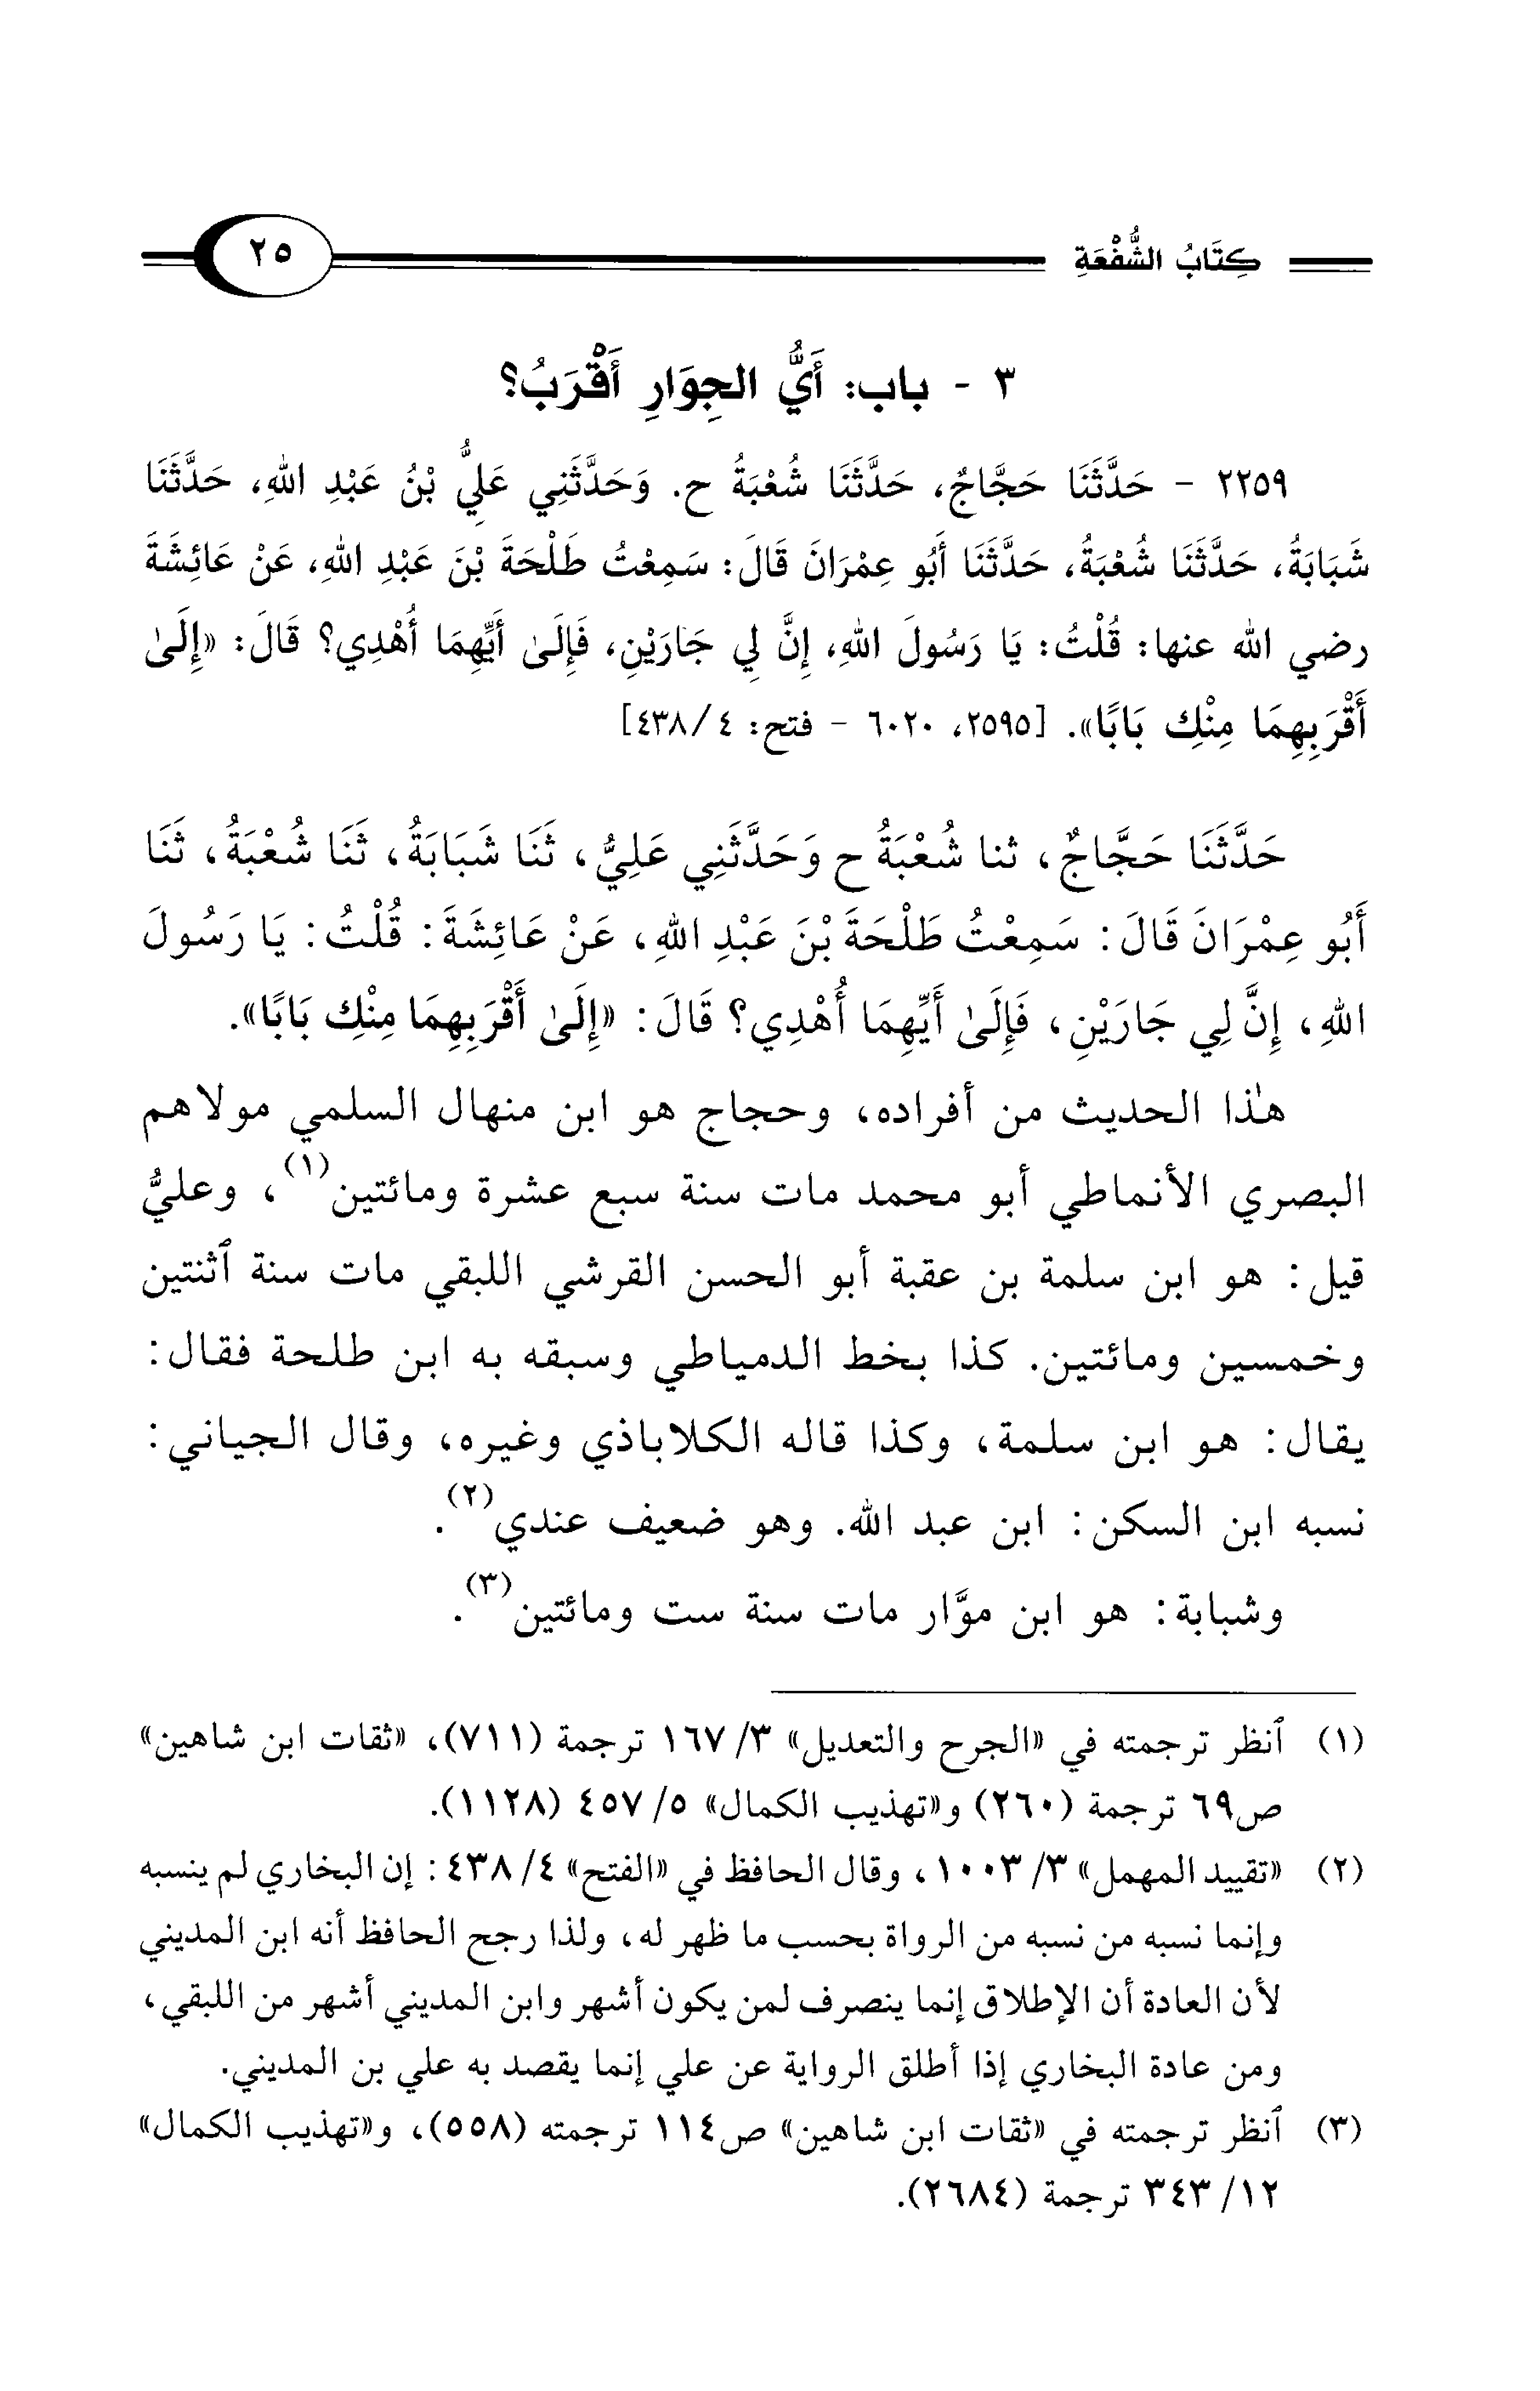 كِتَابُ الشُّفْعَةِ
٢٥
٣ - باب: أَيُّ الجِوَارِ أَقْرَبُ؟
٢٢٥٩ - حَدَّثَنَا حَجَّاجٌ، حَدَّثَنَا شُعْبَةُ ح. وَحَدَّثَنِي عَلِيُّ بْنُ عَبْدِ اللهِ، حَدَّثَنَا
شَبَابَةُ، حَدَّثَنَا شُعْبَةُ، حَدَّثَنَا أَبُو عِمْرَانَ قَالَ: سَمِعْتُ طَلْحَةَ بْنَ عَبْدِ اللهِ، عَنْ عَائِشَةَ
رضي الله عنها: قُلْتُ: يَا رَسُولَ اللهِ، إِنَّ لِي جَارَيْنِ، فَإِلَىٰ أَيِّهِمَا أُهْدِي؟ قَالَ: «إِلَىٰ
أَقْرَبِهِمَا مِنْكِ بَابًا». [٢٥٩٥، ٦٠٢٠ - فتح: ٤/ ٤٣٨]
حَدَّثَنَا حَجَّاجٌ، ثنا شُعْبَةُ ح وَحَدَّثَنِي عَلِيُّ، ثَنَا شَبَابَةُ، ثَنَا شُعْبَةُ، ثَنَا
أَبُو عِمْرَانَ قَالَ: سَمِعْتُ طَلْحَةَ بْنَ عَبْدِ اللهِ، عَنْ عَائِشَةَ: قُلْتُ: يَا رَسُولَ
اللهِ، إِنَّ لِي جَارَيْنِ، فَإِلَىٰ أَيِّهِمَا أُهْدِي؟ قَالَ: «إِلَىٰ أَقْرَبِهِمَا مِنْكِ بَابًا».
هٰذا الحديث من أفراده، وحجاج هو ابن منهال السلمي مولاهم
البصري الأنماطي أبو محمد مات سنة سبع عشرة ومائتين(١)، وعليُّ
قيل: هو ابن سلمة بن عقبة أبو الحسن القرشي اللبقي مات سنة ٱثنتين
وخمسين ومائتين. كذا بخط الدمياطي وسبقه به ابن طلحة فقال:
يقال: هو ابن سلمة، وكذا قاله الكلاباذي وغيره، وقال الجياني:
نسبه ابن السكن: ابن عبد الله. وهو ضعيف عندي(٢).
وشبابة: هو ابن موَّار مات سنة ست ومائتين(٣).
(١) ٱنظر ترجمته في «الجرح والتعديل» ٣/ ١٦٧ ترجمة (٧١١)، «ثقات ابن شاهين»
ص٦٩ ترجمة (٢٦٠) و«تهذيب الكمال» ٥/ ٤٥٧ (١١٢٨).
(٢) «تقييد المهمل» ٣/ ١٠٠٣، وقال الحافظ في «الفتح» ٤/ ٤٣٨: إن البخاري لم ينسبه
وإنما نسبه من نسبه من الرواة بحسب ما ظهر له، ولذا رجح الحافظ أنه ابن المديني
لأن العادة أن الإطلاق إنما ينصرف لمن يكون أشهر وابن المديني أشهر من اللبقي،
ومن عادة البخاري إذا أطلق الرواية عن علي إنما يقصد به علي بن المديني.
(٣) ٱنظر ترجمته في «ثقات ابن شاهين» ص١١٤ ترجمته (٥٥٨)، و«تهذيب الكمال»
١٢/ ٣٤٣ ترجمة (٢٦٨٤).